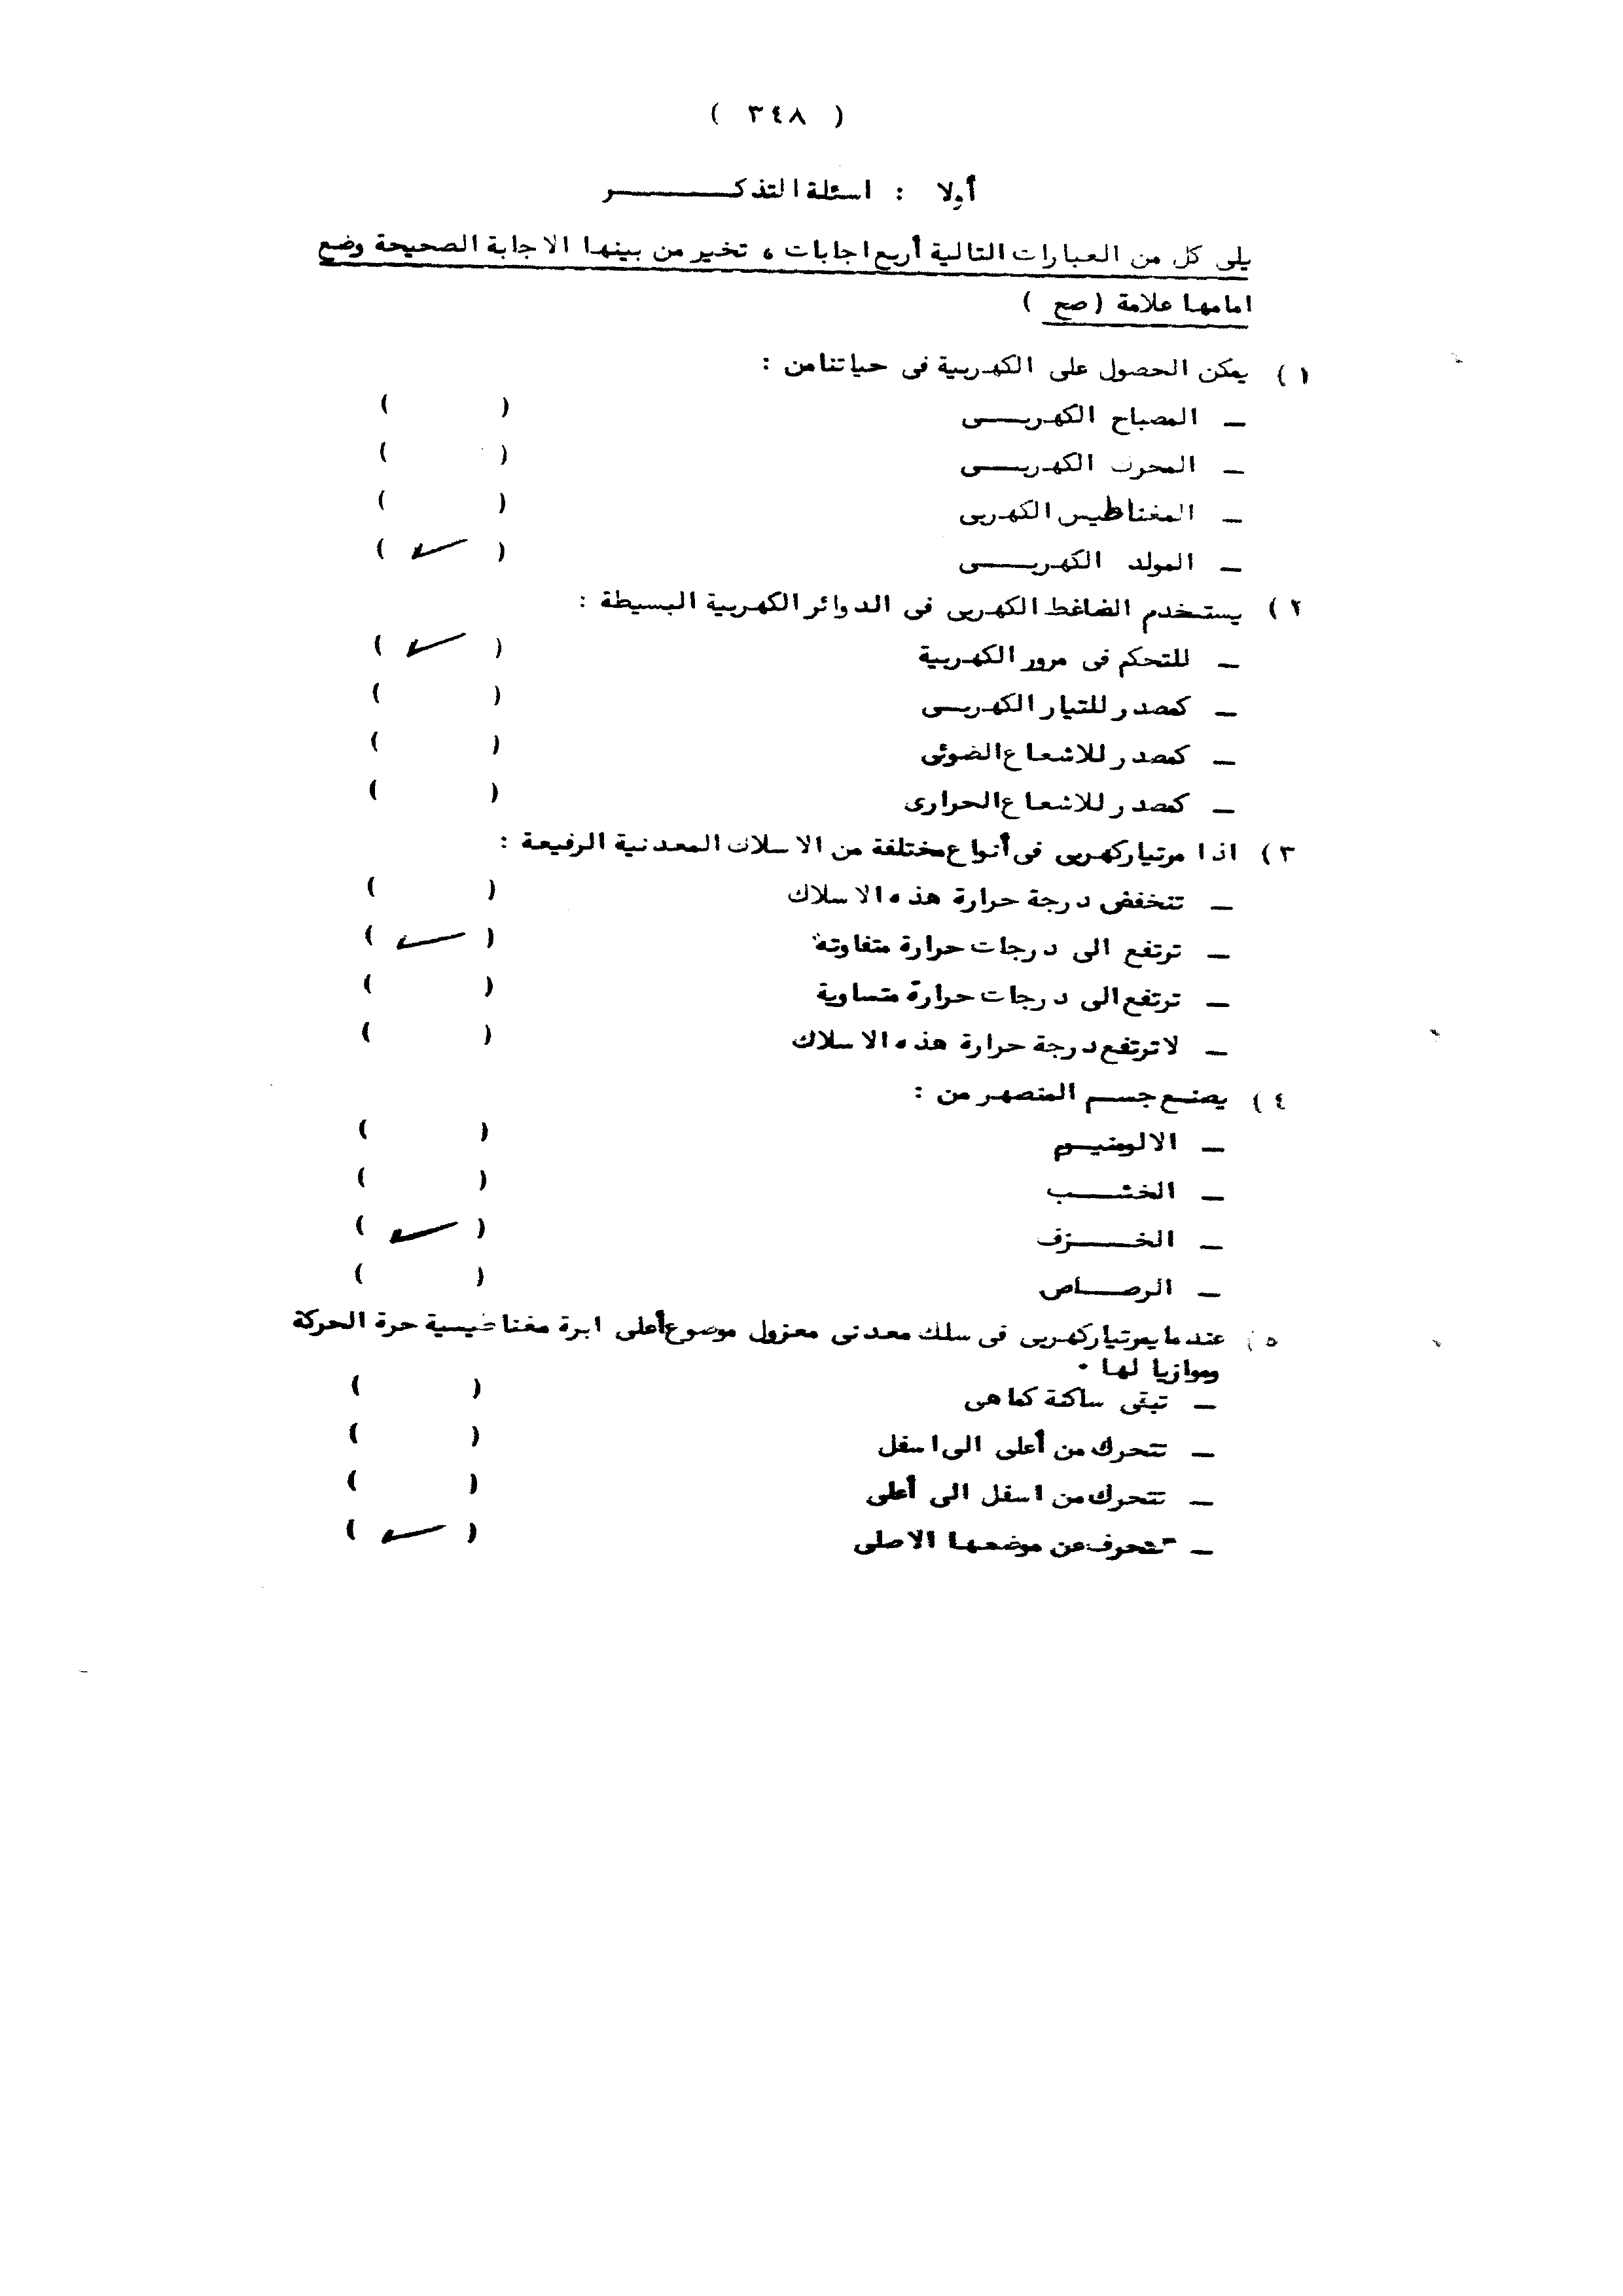 ( ٣٤٨ )
أولا : اسئلة التذكــــــــر
يلى كل من العبارات التالية أربع اجابات ، تخير من بينها الاجابة الصحيحة وضع
امامها علامة ( صح )
١ ) يمكن الحصول على الكهربية فى حياتنا من :
ــ المصباح الكهربــــى ( )
ــ المحرك الكهربــــى ( )
ــ المغناطيس الكهربى ( )
ــ المولد الكهربــــى ( ✓ )
٢ ) يستخدم الضاغط الكهربى فى الدوائر الكهربية البسيطة :
ــ للتحكم فى مرور الكهربية ( ✓ )
ــ كمصدر للتيار الكهربــى ( )
ــ كمصدر للاشعاع الضوئى ( )
ــ كمصدر للاشعاع الحرارى ( )
٣ ) اذا مر تيار كهربى فى أنواع مختلفة من الاسلاك المعدنية الرفيعة :
ــ تنخفض درجة حرارة هذه الاسلاك ( )
ــ ترتفع الى درجات حرارة متفاوتة ( ✓ )
ــ ترتفع الى درجات حرارة متساوية ( )
ــ لا ترتفع درجة حرارة هذه الاسلاك ( )
٤ ) يصنع جســم المنصهر من :
ــ الالومنيــوم ( )
ــ الخشــــب ( )
ــ الخـــــزف ( ✓ )
ــ الرصــــاص ( )
٥ ) عندما يمر تيار كهربى فى سلك معدنى معزول موضوع أعلى ابرة مغناطيسية حرة الحركة
وموازيا لها ٠
ــ تبقى ساكنة كما هى ( )
ــ تتحرك من أعلى الى اسفل ( )
ــ تتحرك من اسفل الى أعلى ( )
ــ تنحرف عن موضعها الاصلى ( ✓ )